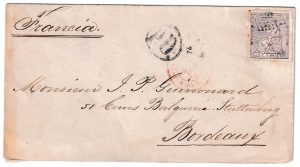 Francia.
Monsieur J. P. Guimmond
51 Cours Balguerie Stuttenberg
Bordeaux